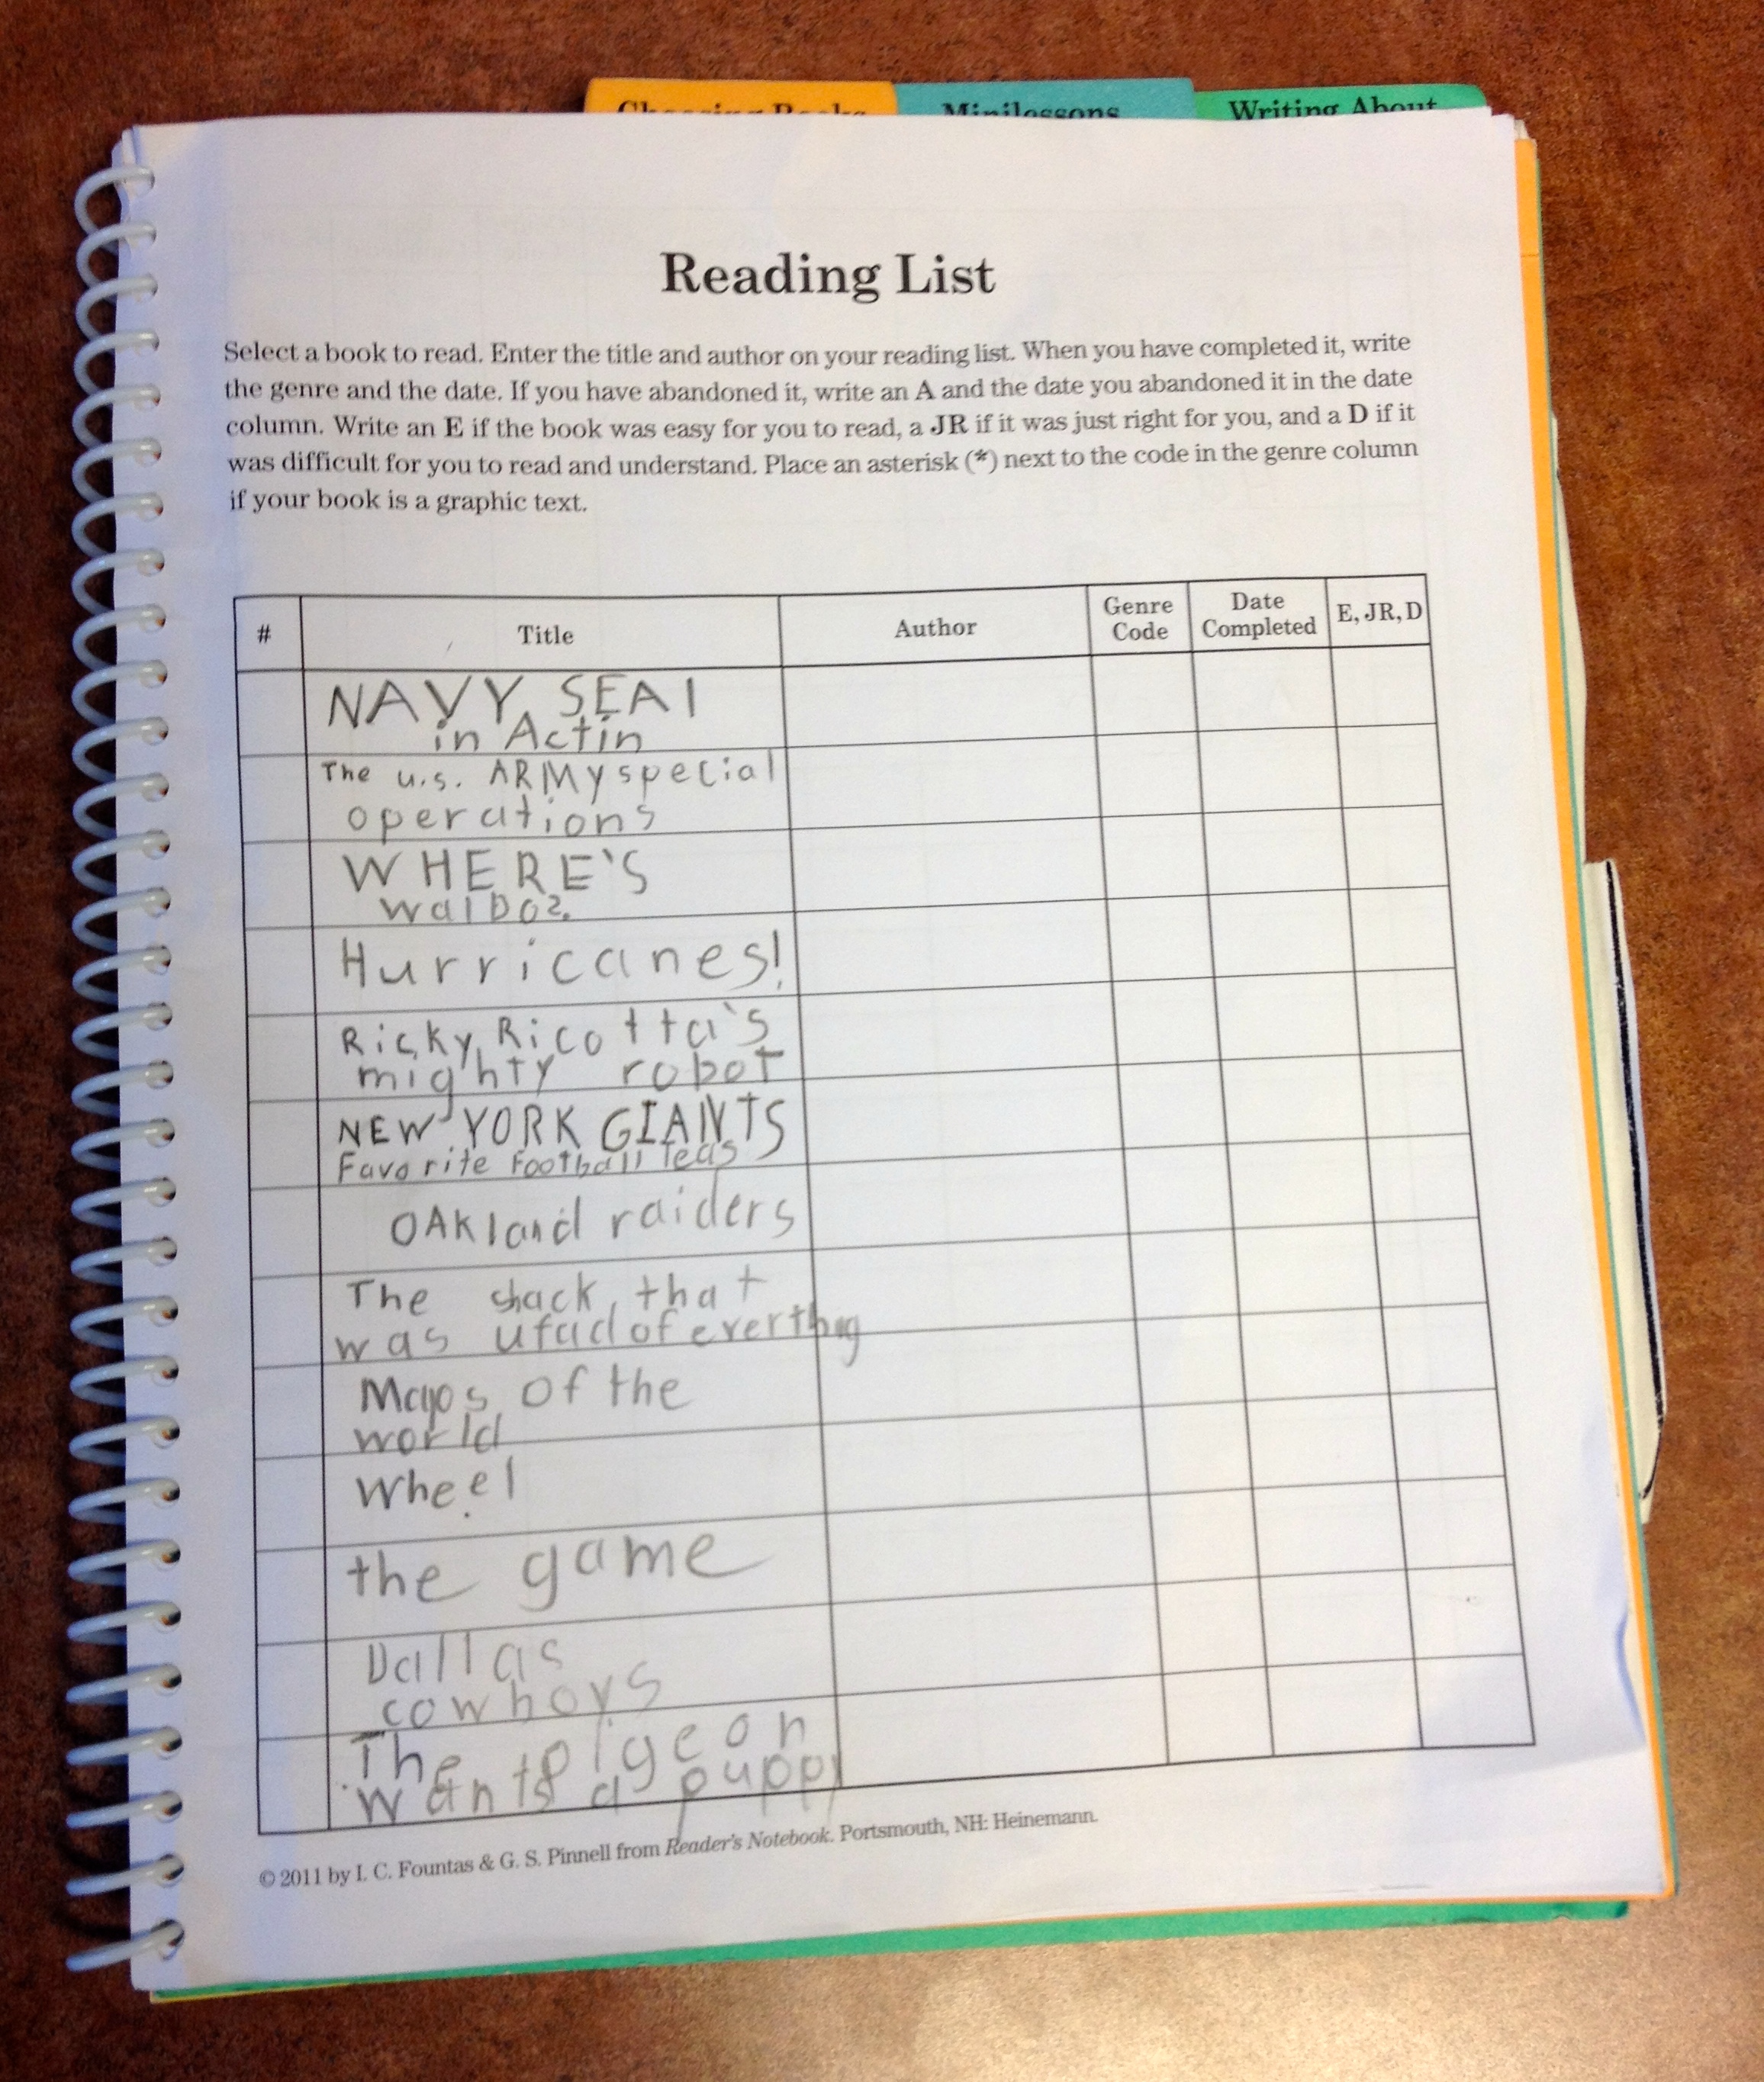 Choosing Books
Minilessons
Writing About
Reading List
Select a book to read. Enter the title and author on your reading list. When you have completed it, write
the genre and the date. If you have abandoned it, write an A and the date you abandoned it in the date
column. Write an E if the book was easy for you to read, a JR if it was just right for you, and a D if it
was difficult for you to read and understand. Place an asterisk (*) next to the code in the genre column
if your book is a graphic text.
# Title Author Genre Code Date Completed E, JR, D
NAVY SEAl
in Actin
The u.s. ARMy special
operations
WHERE'S
walDo?
Hurricanes!
Ricky Ricotta's
mighty robot
NEW YORK GIANTS
Favorite Football
OAKland raiders
The shack that
was of
Maps of the
world
Wheel
the game
Dallas
cowboys
The pigeon
wants a puppy
© 2011 by I. C. Fountas & G. S. Pinnell from Reader's Notebook. Portsmouth, NH: Heinemann.